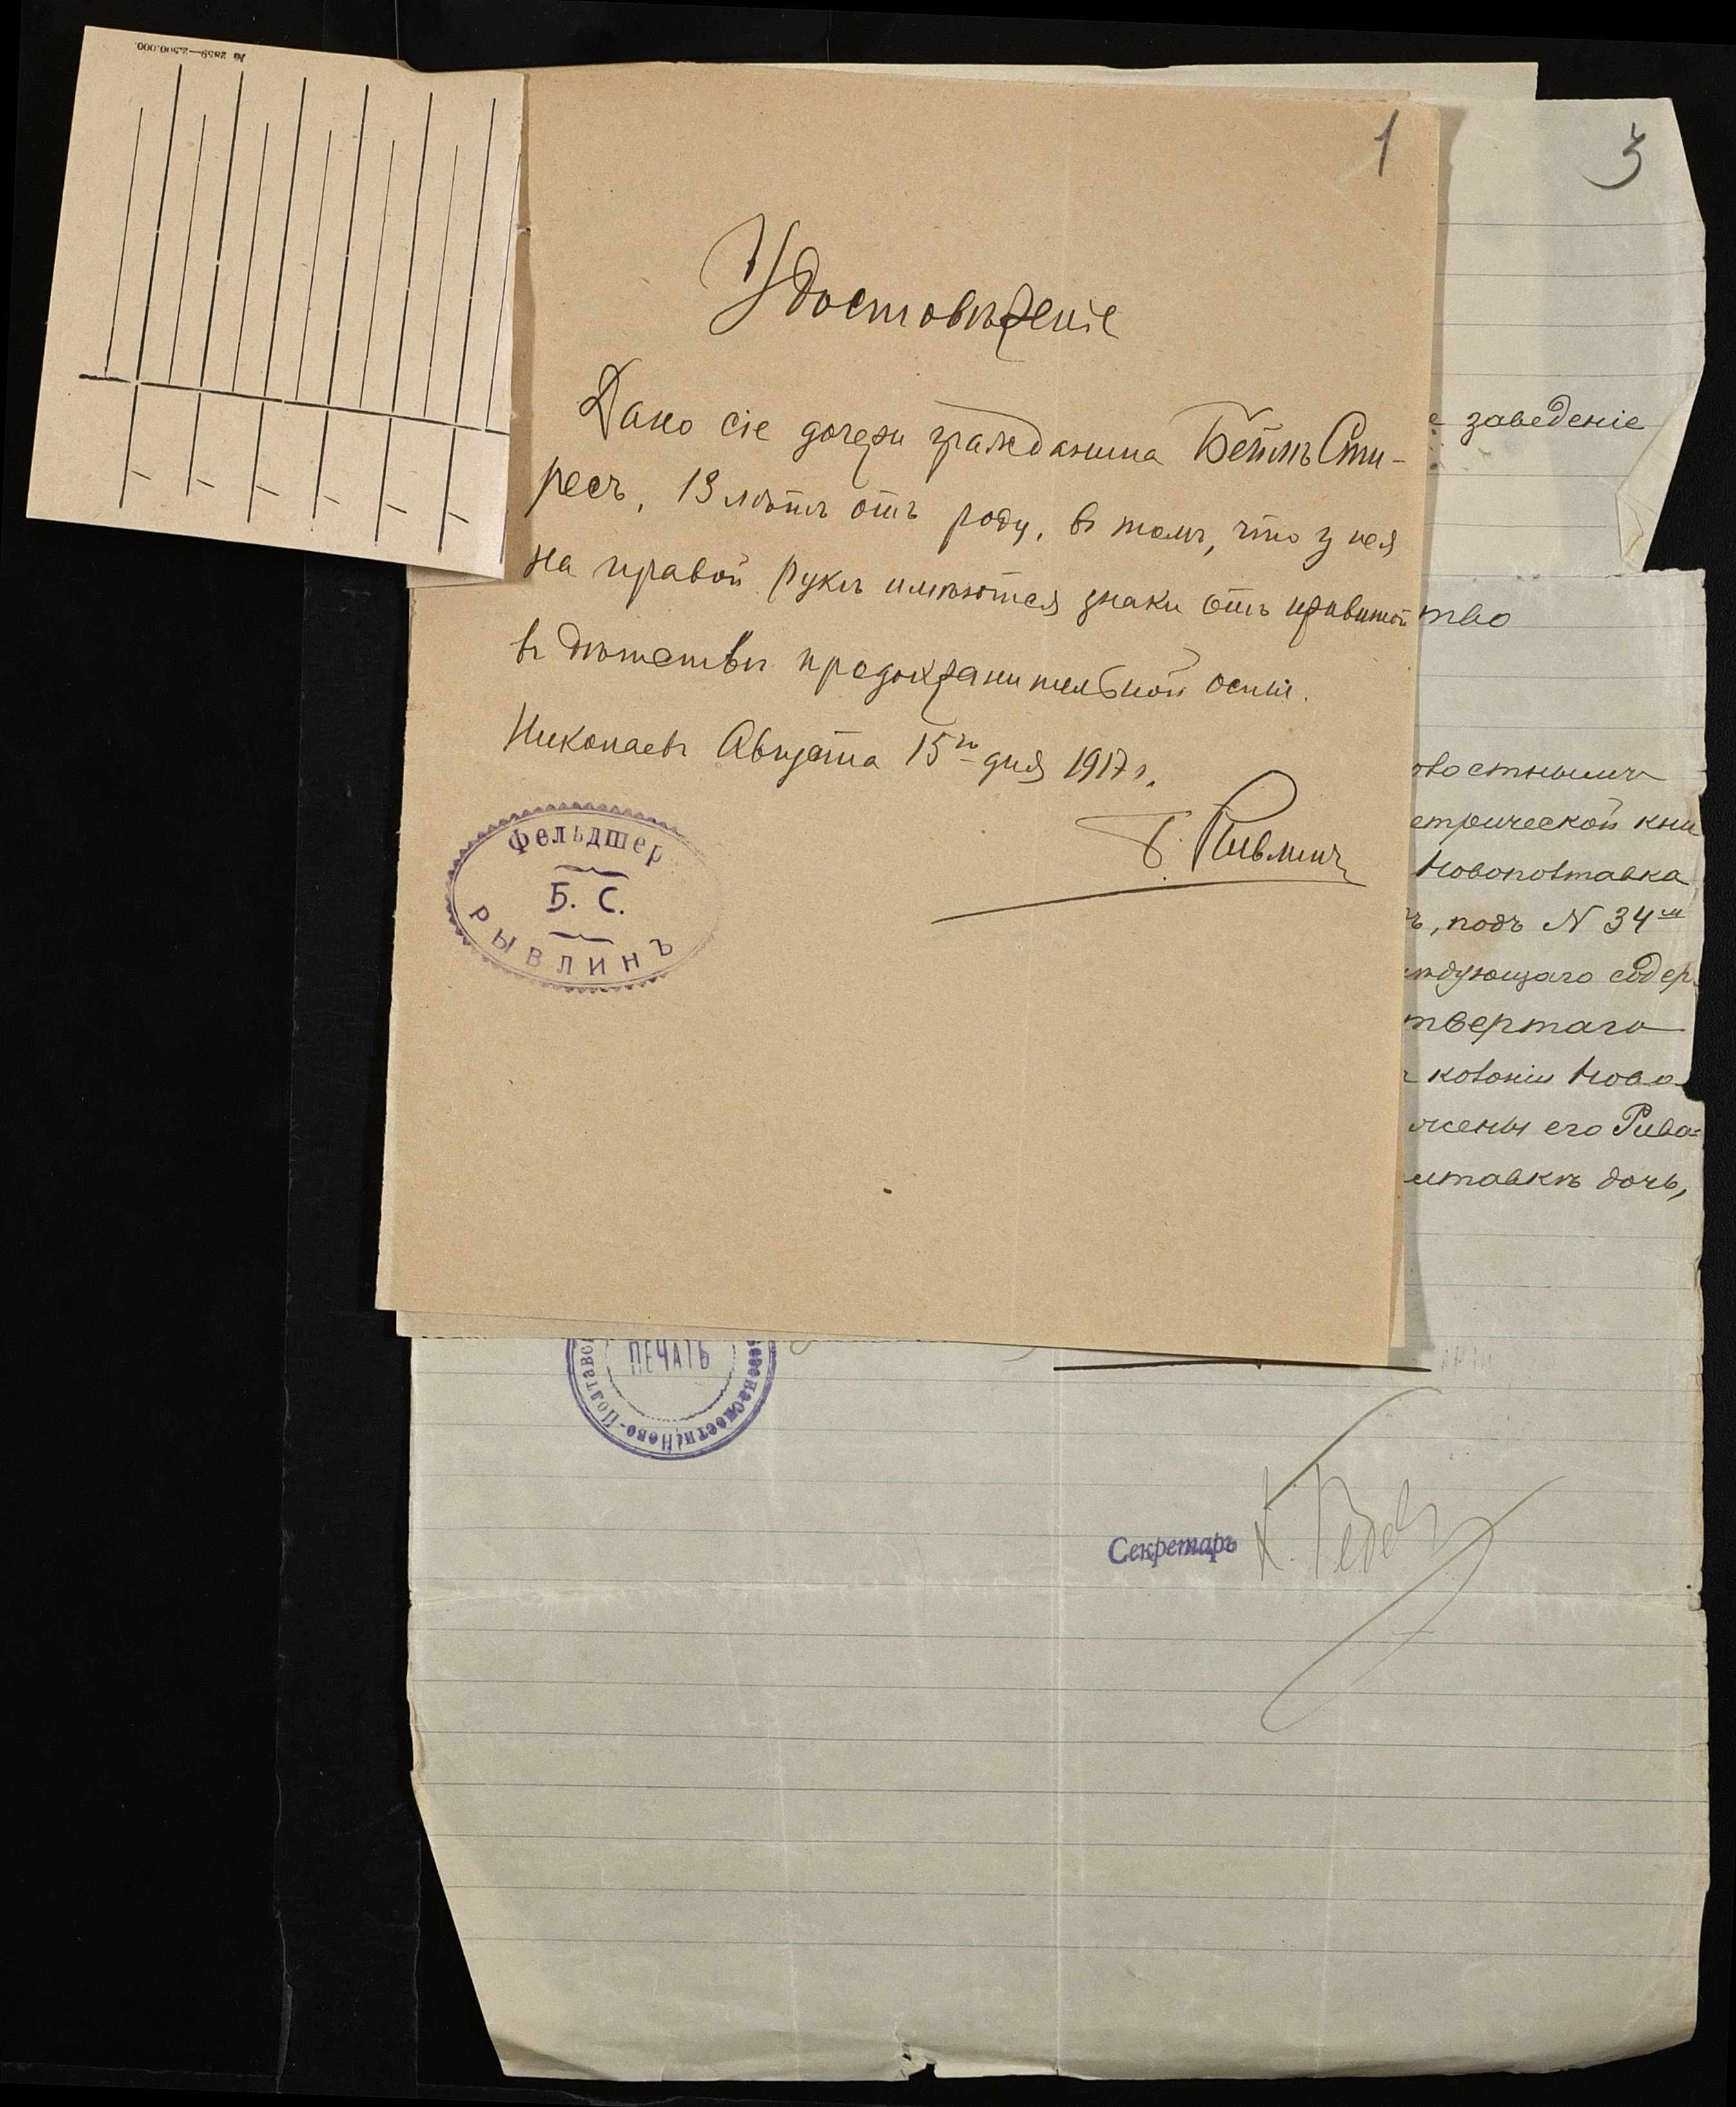 № 2859—2.500.000.
1
Удостовѣреніе
Дано сіе дочери гражданина Бейлѣ Спи-
ресъ, 13 лѣтъ отъ роду, въ томъ, что у нея
на правой рукѣ имѣются знаки отъ привитой
въ дѣтствѣ предохранительной оспы.
Николаевъ Августа 15го дня 1917 г.
Б. Рывлинъ
Фельдшер
Б. С.
РЫВЛИНЪ
3
е заведеніе
тво
етрической кни
Новополтавка
ъ, подъ N 34м
ѣдующаго содер
твертаго
колоніи Ново
жены его Рива=
лтавкѣ дочь,
ПЕЧАТЬ
Ново-Полтавс
Секретарь